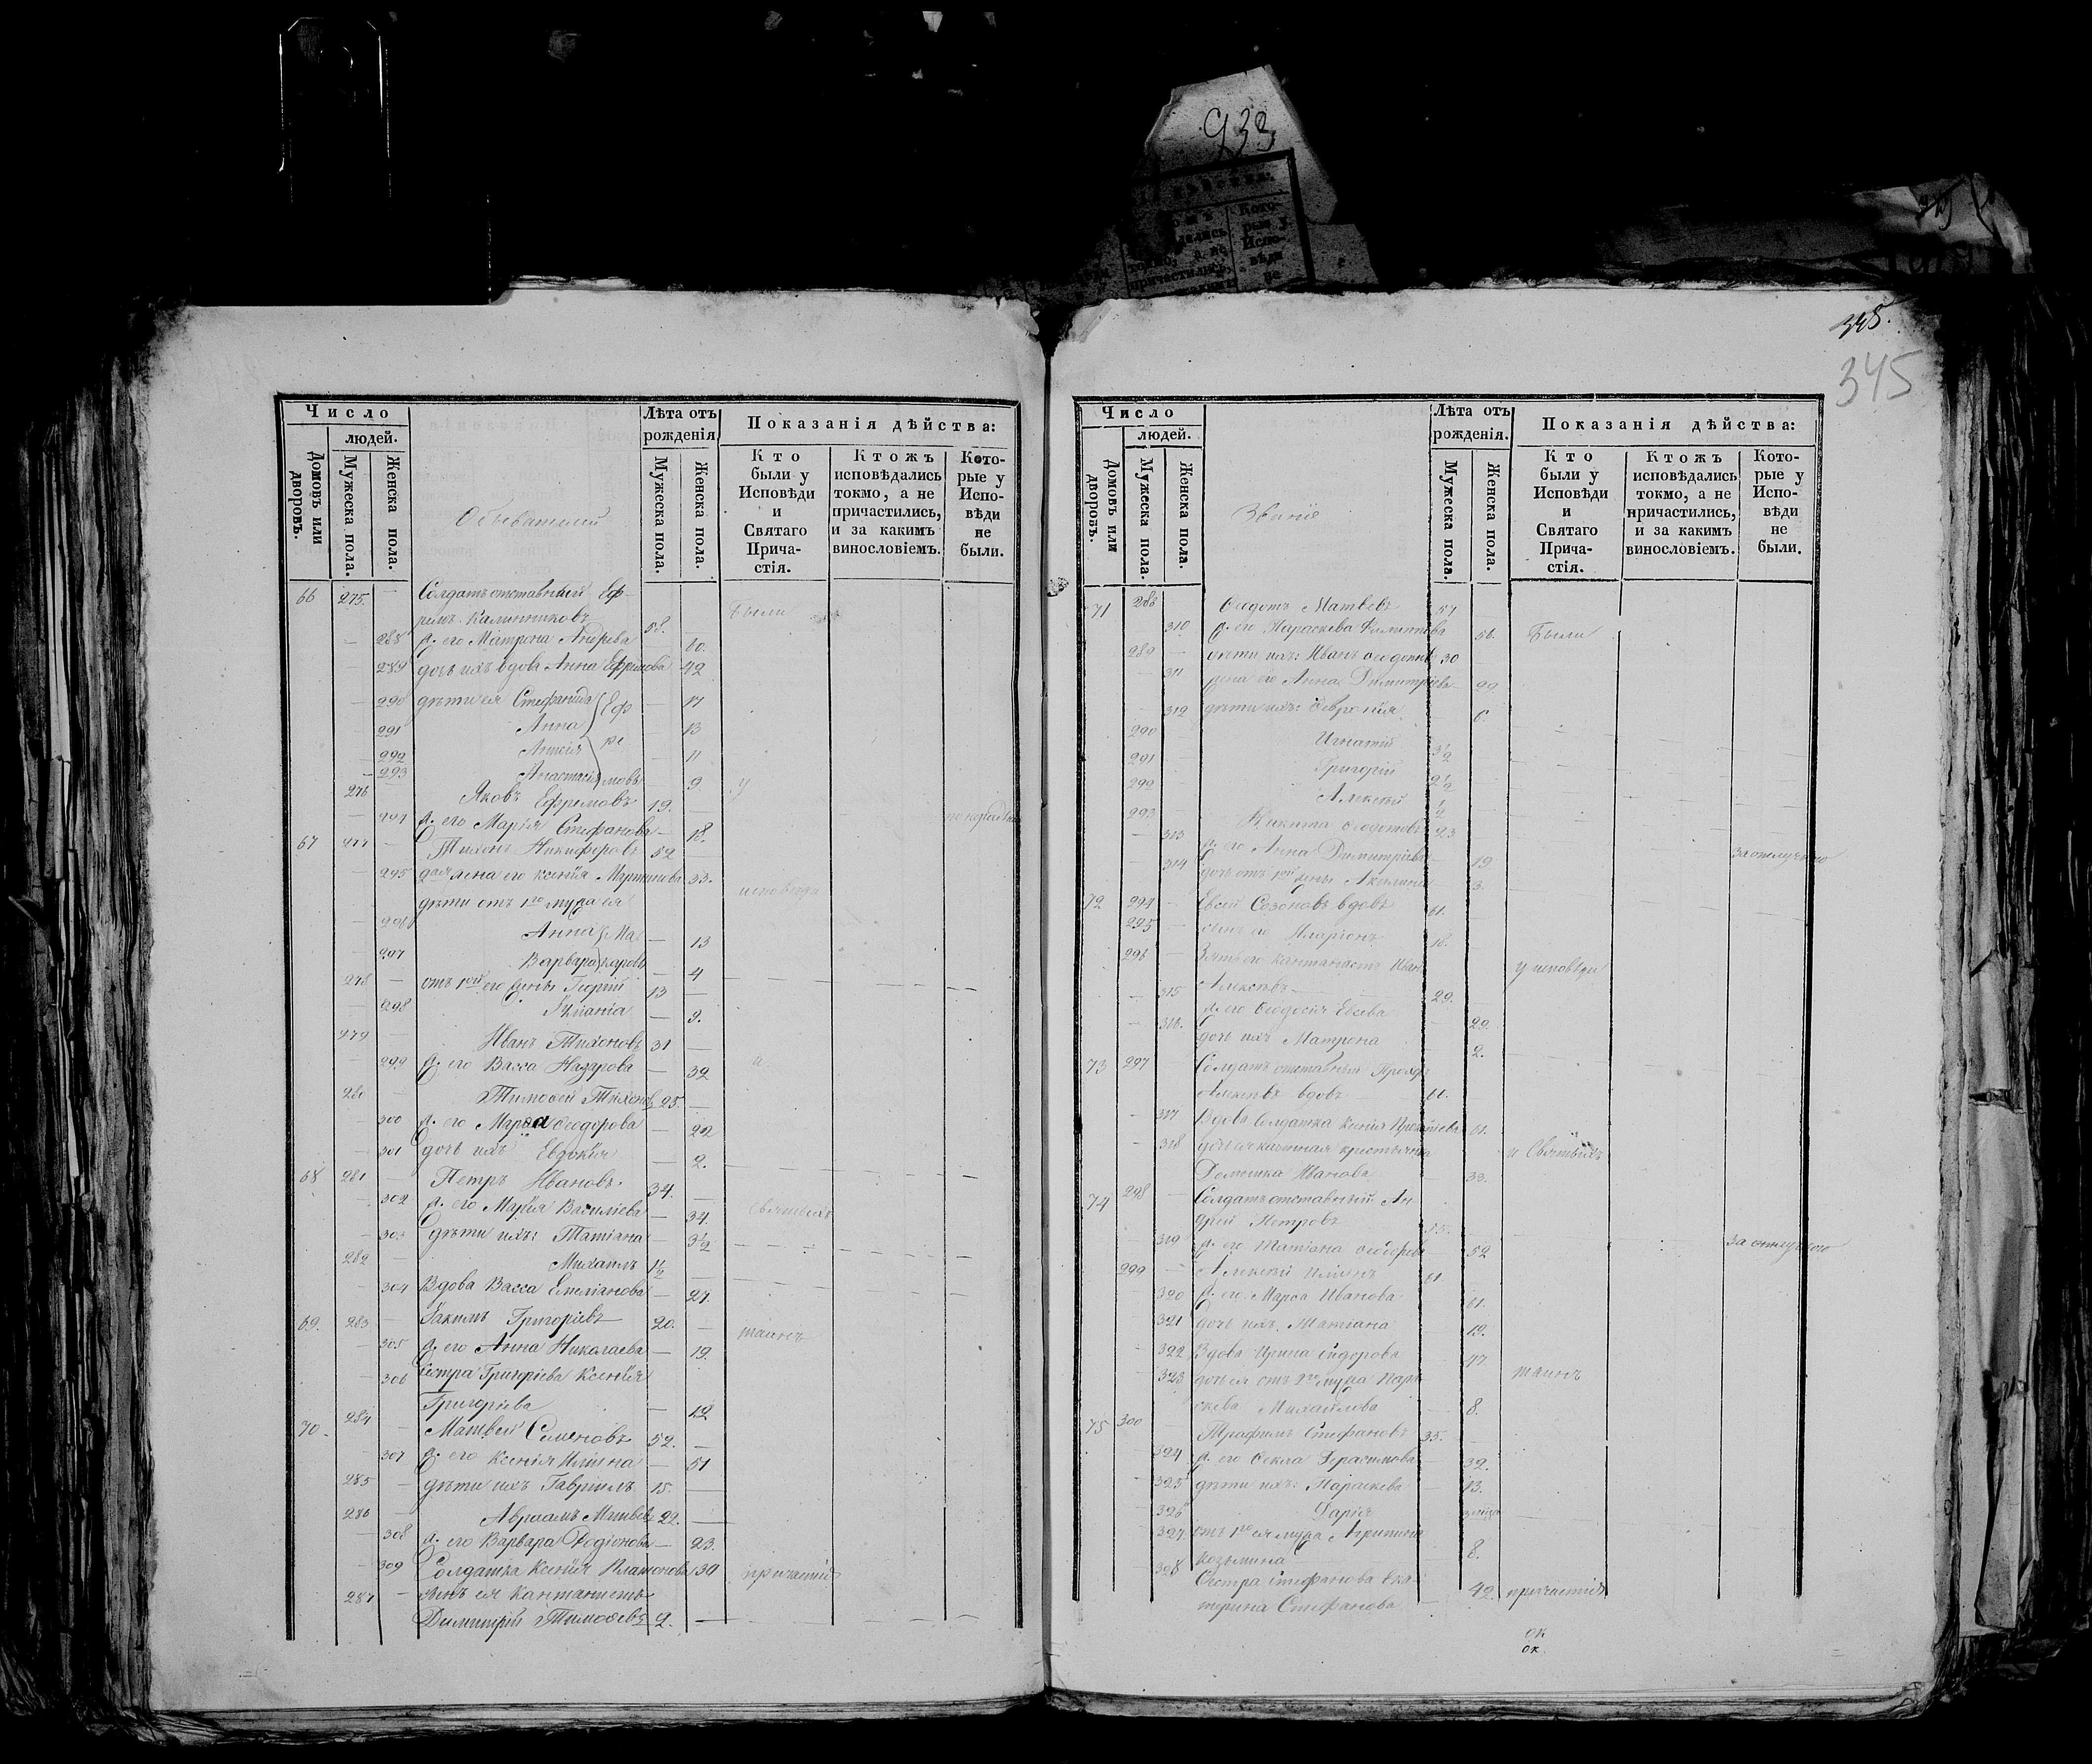 933
345.
345
Число
людей.
Домовъ или дворовъ.
Мужеска пола.
Женска пола.
Обывателей
Лѣта отъ рожденія
Мужеска пола.
Женска пола.
Показанія дѣйства:
Кто были у Исповѣди и Святаго Прича-стія.
Ктожъ исповѣдались токмо, а не причастились, и за какимъ винословіемъ.
Кото-рые у Испо-вѣди не были.
66 275. — Солдатъ отставный Еф-
ремъ Калинниковъ 58. были
— 288 ж. его Матрона Андреева — 60.
— 289 дочь ихъ вдова Анна Ефремова 42
— 290 дѣти ея Стефанида Еф — 17
291 Анна 13
— 292 ре — 11
— 293 Анастасія мовы 9 у
276 Яковъ Ефремовъ 19.
— 294 ж. его Марія Стефанова — 18.
67 277 — Тихонъ Никифоровъ 52 —
— 295 жена его Ксенія Мартинова 33. исповѣди
дѣти отъ 1го мужа ея
296 Анна Ма — 13
— 297 Варвара каровы — 4
278 — отъ 1ой его жены Георгій 13 —
— 298 — 9.
279 Иванъ Тихоновъ 31 —
— 299 ж. его Васса Назарова — 32 и
280 — Тимоѳей Тихоновъ 25. —
— 300 ж. его Марѳа Ѳеодорова — 22
— 301 дочь ихъ Евдокія — 2.
68 281 — Петръ Ивановъ 34. —
— 302 ж. его Марія Василіева — 34. Святыхъ
— 303 дѣти ихъ: Татіана — 3½
282 — Михаилъ 1½ —
— 304 Вдова Васса Емеліанова — 27.
69. 283 — Іакимъ Григоріевъ 20. — таинъ
— 305 ж. его Анна Николаева — 19.
— 306 сестра Григоріева Ксенія
Григоріева — 12
70. 284 — Матвей Семеновъ 52. —
— 307 ж. его Ксенія Ильина — 51
285 — дѣти ихъ Гавріилъ 15. —
286 — Авраамъ Матвеевъ 22. —
— 308 ж. его Варвара Родіонова — 23.
— 309 Солдатка Ксенія Платонова 30 причастія
287 — сынъ ея кантонистъ
Димитрій Тимоѳеевъ 9. —
Число
людей.
Домовъ или дворовъ.
Мужеска пола.
Женска пола.
Званіе
Лѣта отъ рожденія.
Мужеска пола.
Женска пола.
Показанія дѣйства:
Кто были у Исповѣди и Святаго Прича-стія.
Ктожъ исповѣдались токмо, а не причастились, и за какимъ винословіемъ.
Кото-рые у Испо-вѣди не были.
71 288 Ѳеодотъ Матвеевъ 57
310 ж. его Параскева Филиппова 56. были
289 — дѣти ихъ: Иванъ Ѳеодотовъ 30
— 311 жена его Анна Димитріева 22
— 312 дѣти ихъ: Ѳеврónія 6
290 Игнатій 3½
291 Григорій 2½
292 Алексей ½
293 Никита Ѳеодотовъ 23
— 313 ж. его Анна Димитріева 19 за отлучкою
— 314 дочь отъ 1ой жены Акилина 3.
72 294 — Евсей Созоновъ вдовъ 61.
295 — сынъ его Иларіонъ 18.
296 — Зять его кантонистъ Иванъ у исповѣди
Алексеевъ 29.
— 315 ж. его Ѳеодосія Евсева 29.
— 316. дочь ихъ Матрона 2.
73 297 Солдатъ отставный
Алексеевъ вдовъ 61.
— 317 Вдова Солдатка Ксенія 61.
— 318 дочь ея казенная крестьянка и Святыхъ
Домника Иванова 33.
74 298 — Солдатъ отставный Ан-
дрей Петровъ 55.
319 ж. его Татіана Ѳеодорова 52 за отлучкою
299 — Алексей Ильинъ 61.
— 320 ж. его Марѳа Иванова 61.
— 321 дочь ихъ Татіана 19.
— 322 Вдова Ирина Сидорова 47.
— 323 дочь ея отъ 2го мужа Пара- таинъ
скева Михайлова 8.
75 300 Трофимъ Стефановъ 35.
— 324 ж. его Ѳекла Герасимова 32.
— 325 дѣти ихъ: Параскева 13.
— 326 Дарія
— 327. отъ 1го ея мужа Агрипина
Козьмина 8.
— 328 Сестра Стефанова Ека-
терина Стефанова 42. причастія
ок
ок.